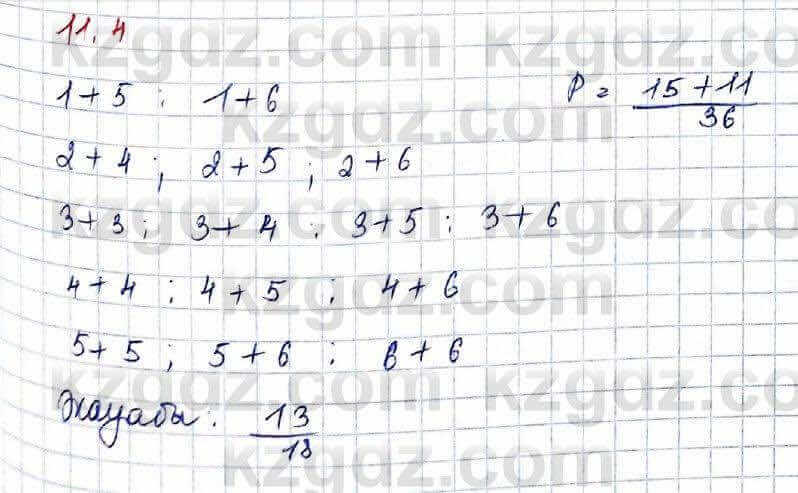 11.4
1+5 : 1+6 P = 15+11/36
2+4 ; 2+5 ; 2+6
3+3 ; 3+4 : 3+5 : 3+6
4+4 : 4+5 : 4+6
5+5 ; 5+6 : 6+6
Жауабы: 13/18
kzgdz.com
kzgdz.com
kzgdz.com
kzgdz.com
kzgdz.com
kzgdz.com
kzgdz.com
kzgdz.com